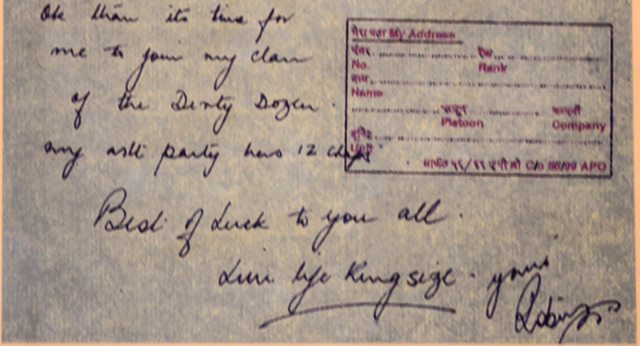 Ok than its time for
me to join my clan
of the Dirty Dozen.
my aslt party has 12 chaps
Best of Luck to you all.
Live life King size. yours
Robin
मेरा पता My Address
नंबर
रैंक
No.
Rank
नाम
Name
प्लाटून
कम्पनी
Platoon
Company
यूनिट
Unit
C/o 56/99 APO